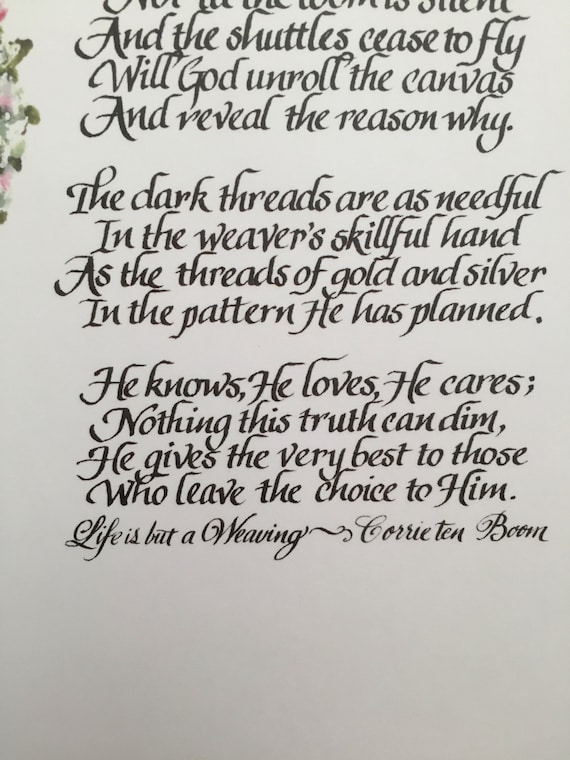 Not 'til the loom is silent
And the shuttles cease to fly
Will God unroll the canvas
And reveal the reason why.
The dark threads are as needful
In the weaver's skillful hand
As the threads of gold and silver
In the pattern He has planned.
He knows, He loves, He cares;
Nothing this truth can dim,
He gives the very best to those
Who leave the choice to Him.
Life is but a Weaving ~ Corrie ten Boom